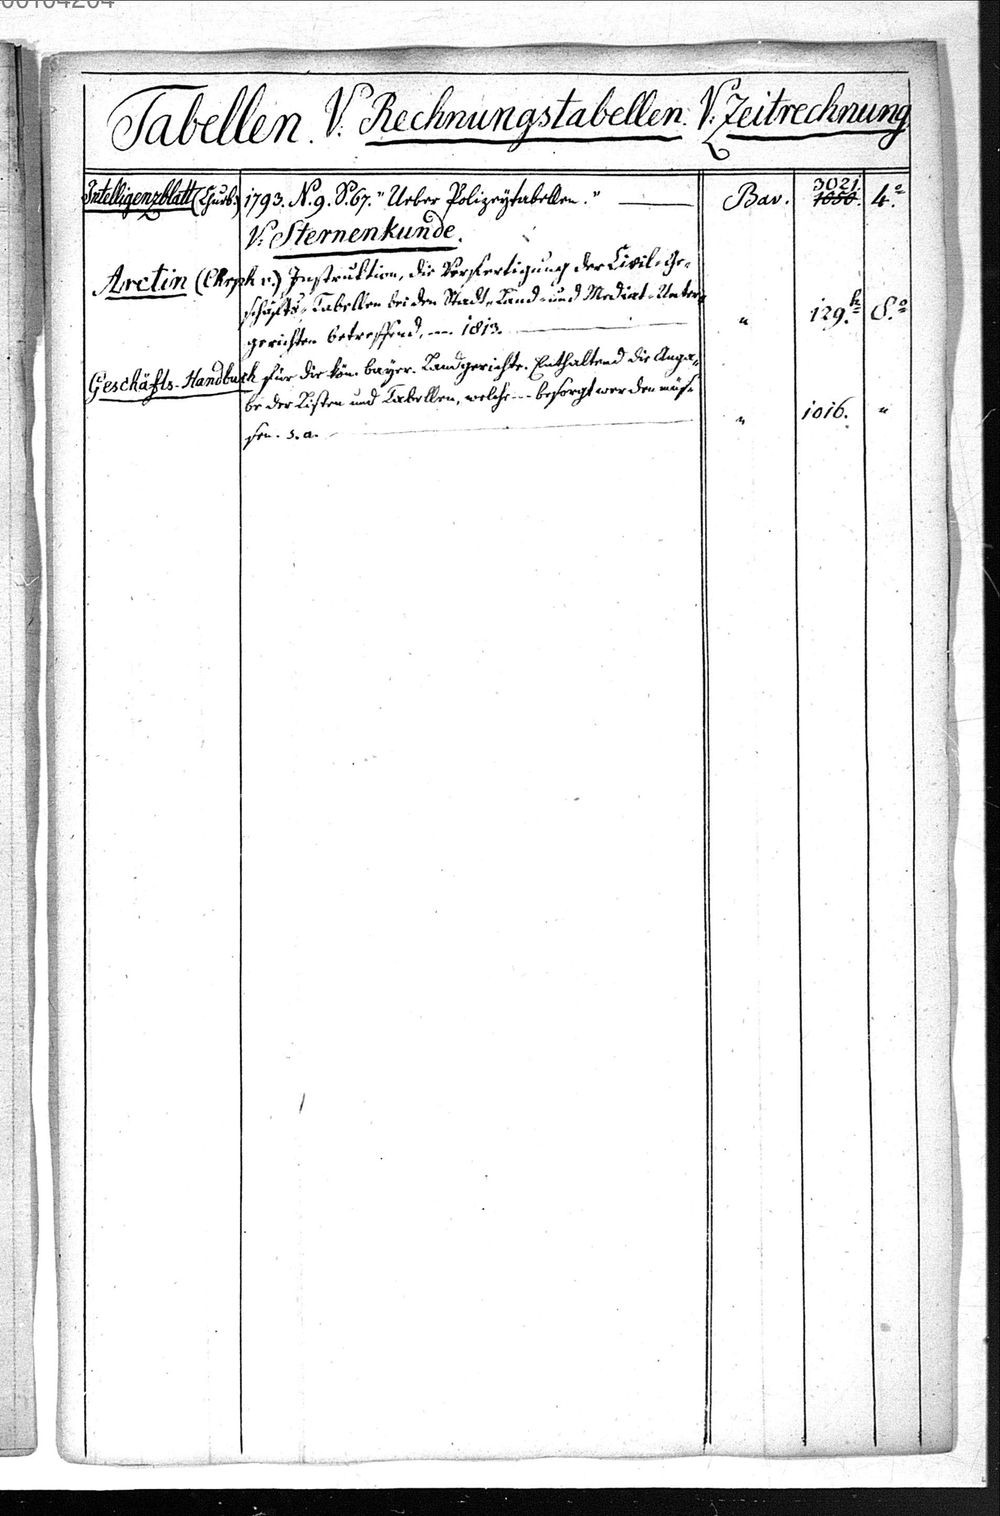 Tabellen. V. Rechnungstabellen. V. Zeitrechnung
Intelligenzblatt (Churb:) 1793. N. 9. S. 67. "Ueber Polizeytabellen." Bav. 3021. 1050. 4.º
V. Sternenkunde.
Aretin (Chrph v.) Instruktion, die Verfertigung der Civil-Ge-
schäfts-Tabellen bei den Stadt- Land- und Mediat-Unter-
gerichten betreffend, — 1813. " 129.h 8.º
Geschäfts-Handbuch für die kön. bayer. Landgerichte. Enthaltend die Anga-
be der Listen und Tabellen, welche --- besorgt werden müs-
sen. s. a. " 1016. "